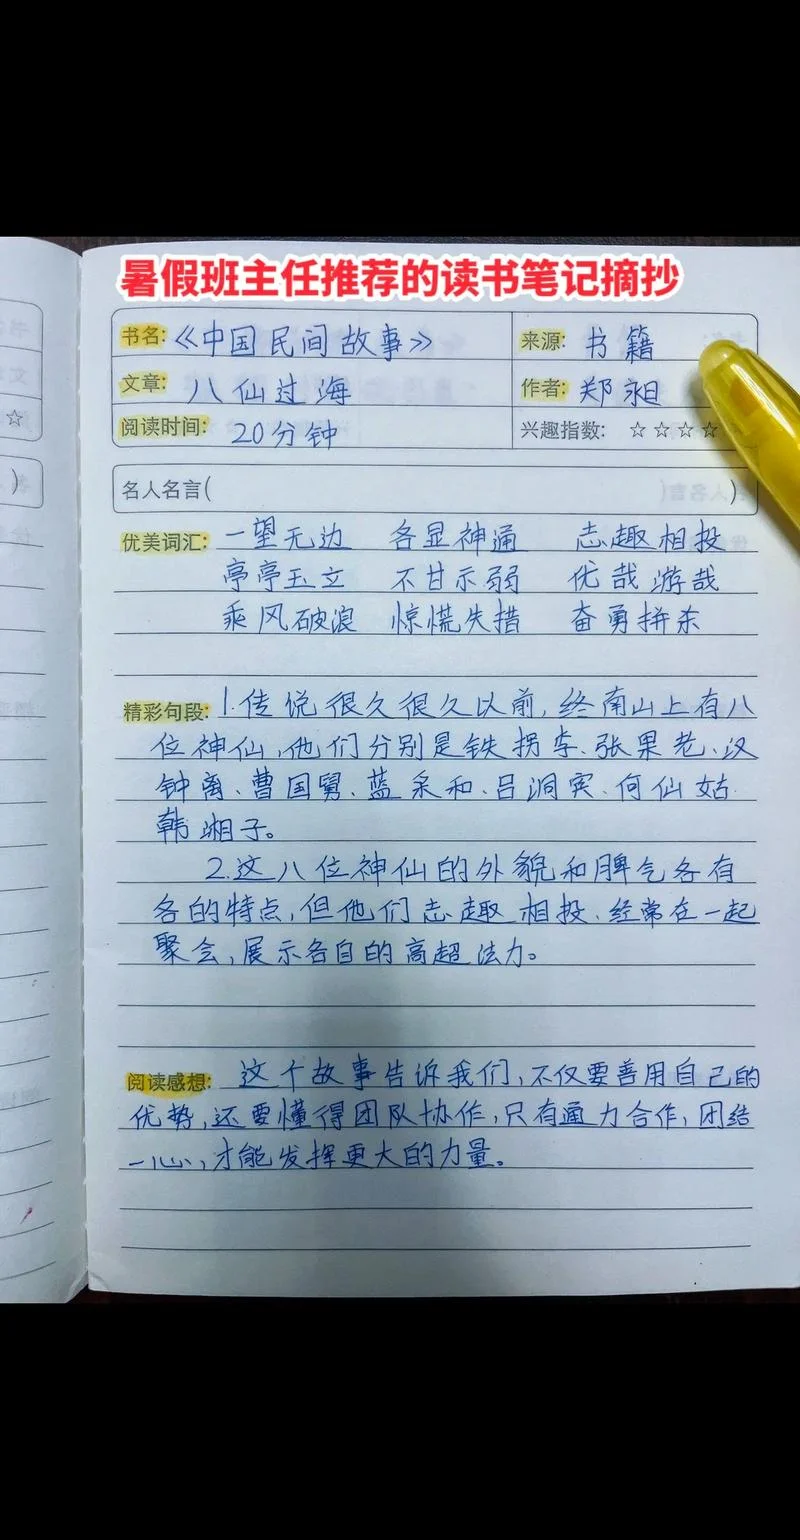 暑假班主任推荐的读书笔记摘抄
书名:《中国民间故事》 来源: 书籍
文章: 八仙过海 作者: 郑昶
阅读时间: 20分钟 兴趣指数: ☆☆☆☆
名人名言( )
优美词汇: 一望无边 各显神通 志趣相投
亭亭玉立 不甘示弱 优哉游哉
乘风破浪 惊慌失措 奋勇拼杀
精彩句段: 1.传说很久很久以前,终南山上有八
位神仙,他们分别是铁拐李、张果老、汉
钟离、曹国舅、蓝采和、吕洞宾、何仙姑
韩湘子。
2.这八位神仙的外貌和脾气各有
各的特点,但他们志趣相投、经常在一起
聚会,展示各自的高超法力。
阅读感想: 这个故事告诉我们,不仅要善用自己的
优势,还要懂得团队协作,只有通力合作,团结
一心,才能发挥更大的力量。